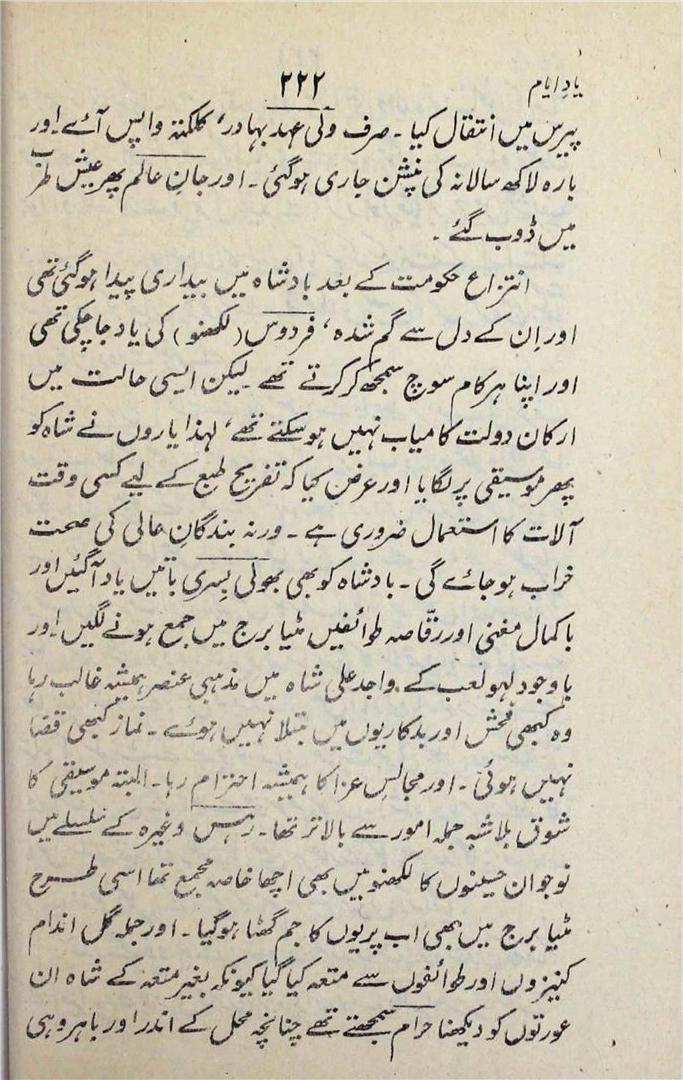 یادِ ایام
۲۲۲
پیرس میں انتقال کیا۔ صرف ولی عہد بہادر، کلکتہ واپس آئے اور
بارہ لاکھ سالانہ کی پنشن جاری ہوگئی۔ اور جانِ عالم پھر عیش طرب
میں ڈوب گئے۔
انتزاع حکومت کے بعد بادشاہ میں بیداری پیدا ہوگئی تھی
اور اِن کے دل سے گم شدہ، فردوس (لکھنو) کی یاد جا چکی تھی
اور اپنا ہر کام سوچ سمجھ کر کرتے تھے لیکن ایسی حالت میں
ارکان دولت کامیاب نہیں ہوسکتے تھے، لہذا یاروں نے شاہ کو
پھر موسیقی پر لگایا اور عرض کیا کہ تفریح طبع کے لیے کسی وقت
آلات کا استعمال ضروری ہے۔ ورنہ بندگانِ عالی کی صحت
خراب ہوجائے گی۔ بادشاہ کو بھی بھولی بسری باتیں یاد آگئیں اور
باکمال مغنی اور رقّاصہ طوائفیں مٹیا برج میں جمع ہونے لگیں اور
باوجود لہو لعب کے واجد علی شاہ میں مذہبی عنصر ہمیشہ غالب رہا
وہ کبھی فحش اور بدکاریوں میں مبتلا نہیں ہوئے۔ نماز کبھی قضا
نہیں ہوئی۔ اور مجالسِ عزا کا ہمیشہ احترام رہا۔ البتہ موسیقی کا
شوق بلاشبہ جملہ امور سے بالاتر تھا۔ رہس وغیرہ کے سلسلے میں
نوجوان حسینوں کا لکھنو میں بھی اچھا خاصہ مجمع تھا اسی طرح
مٹیا برج میں بھی اب پریوں کا جم گھٹا ہوگیا۔ اور جملہ گل اندام
کنیزوں اور طوائفوں سے متعہ کیا گیا کیونکہ بغیر متعہ کے شاہ ان
عورتوں کو دیکھنا حرام سمجھتے تھے چنانچہ محل کے اندر اور باہر وہی